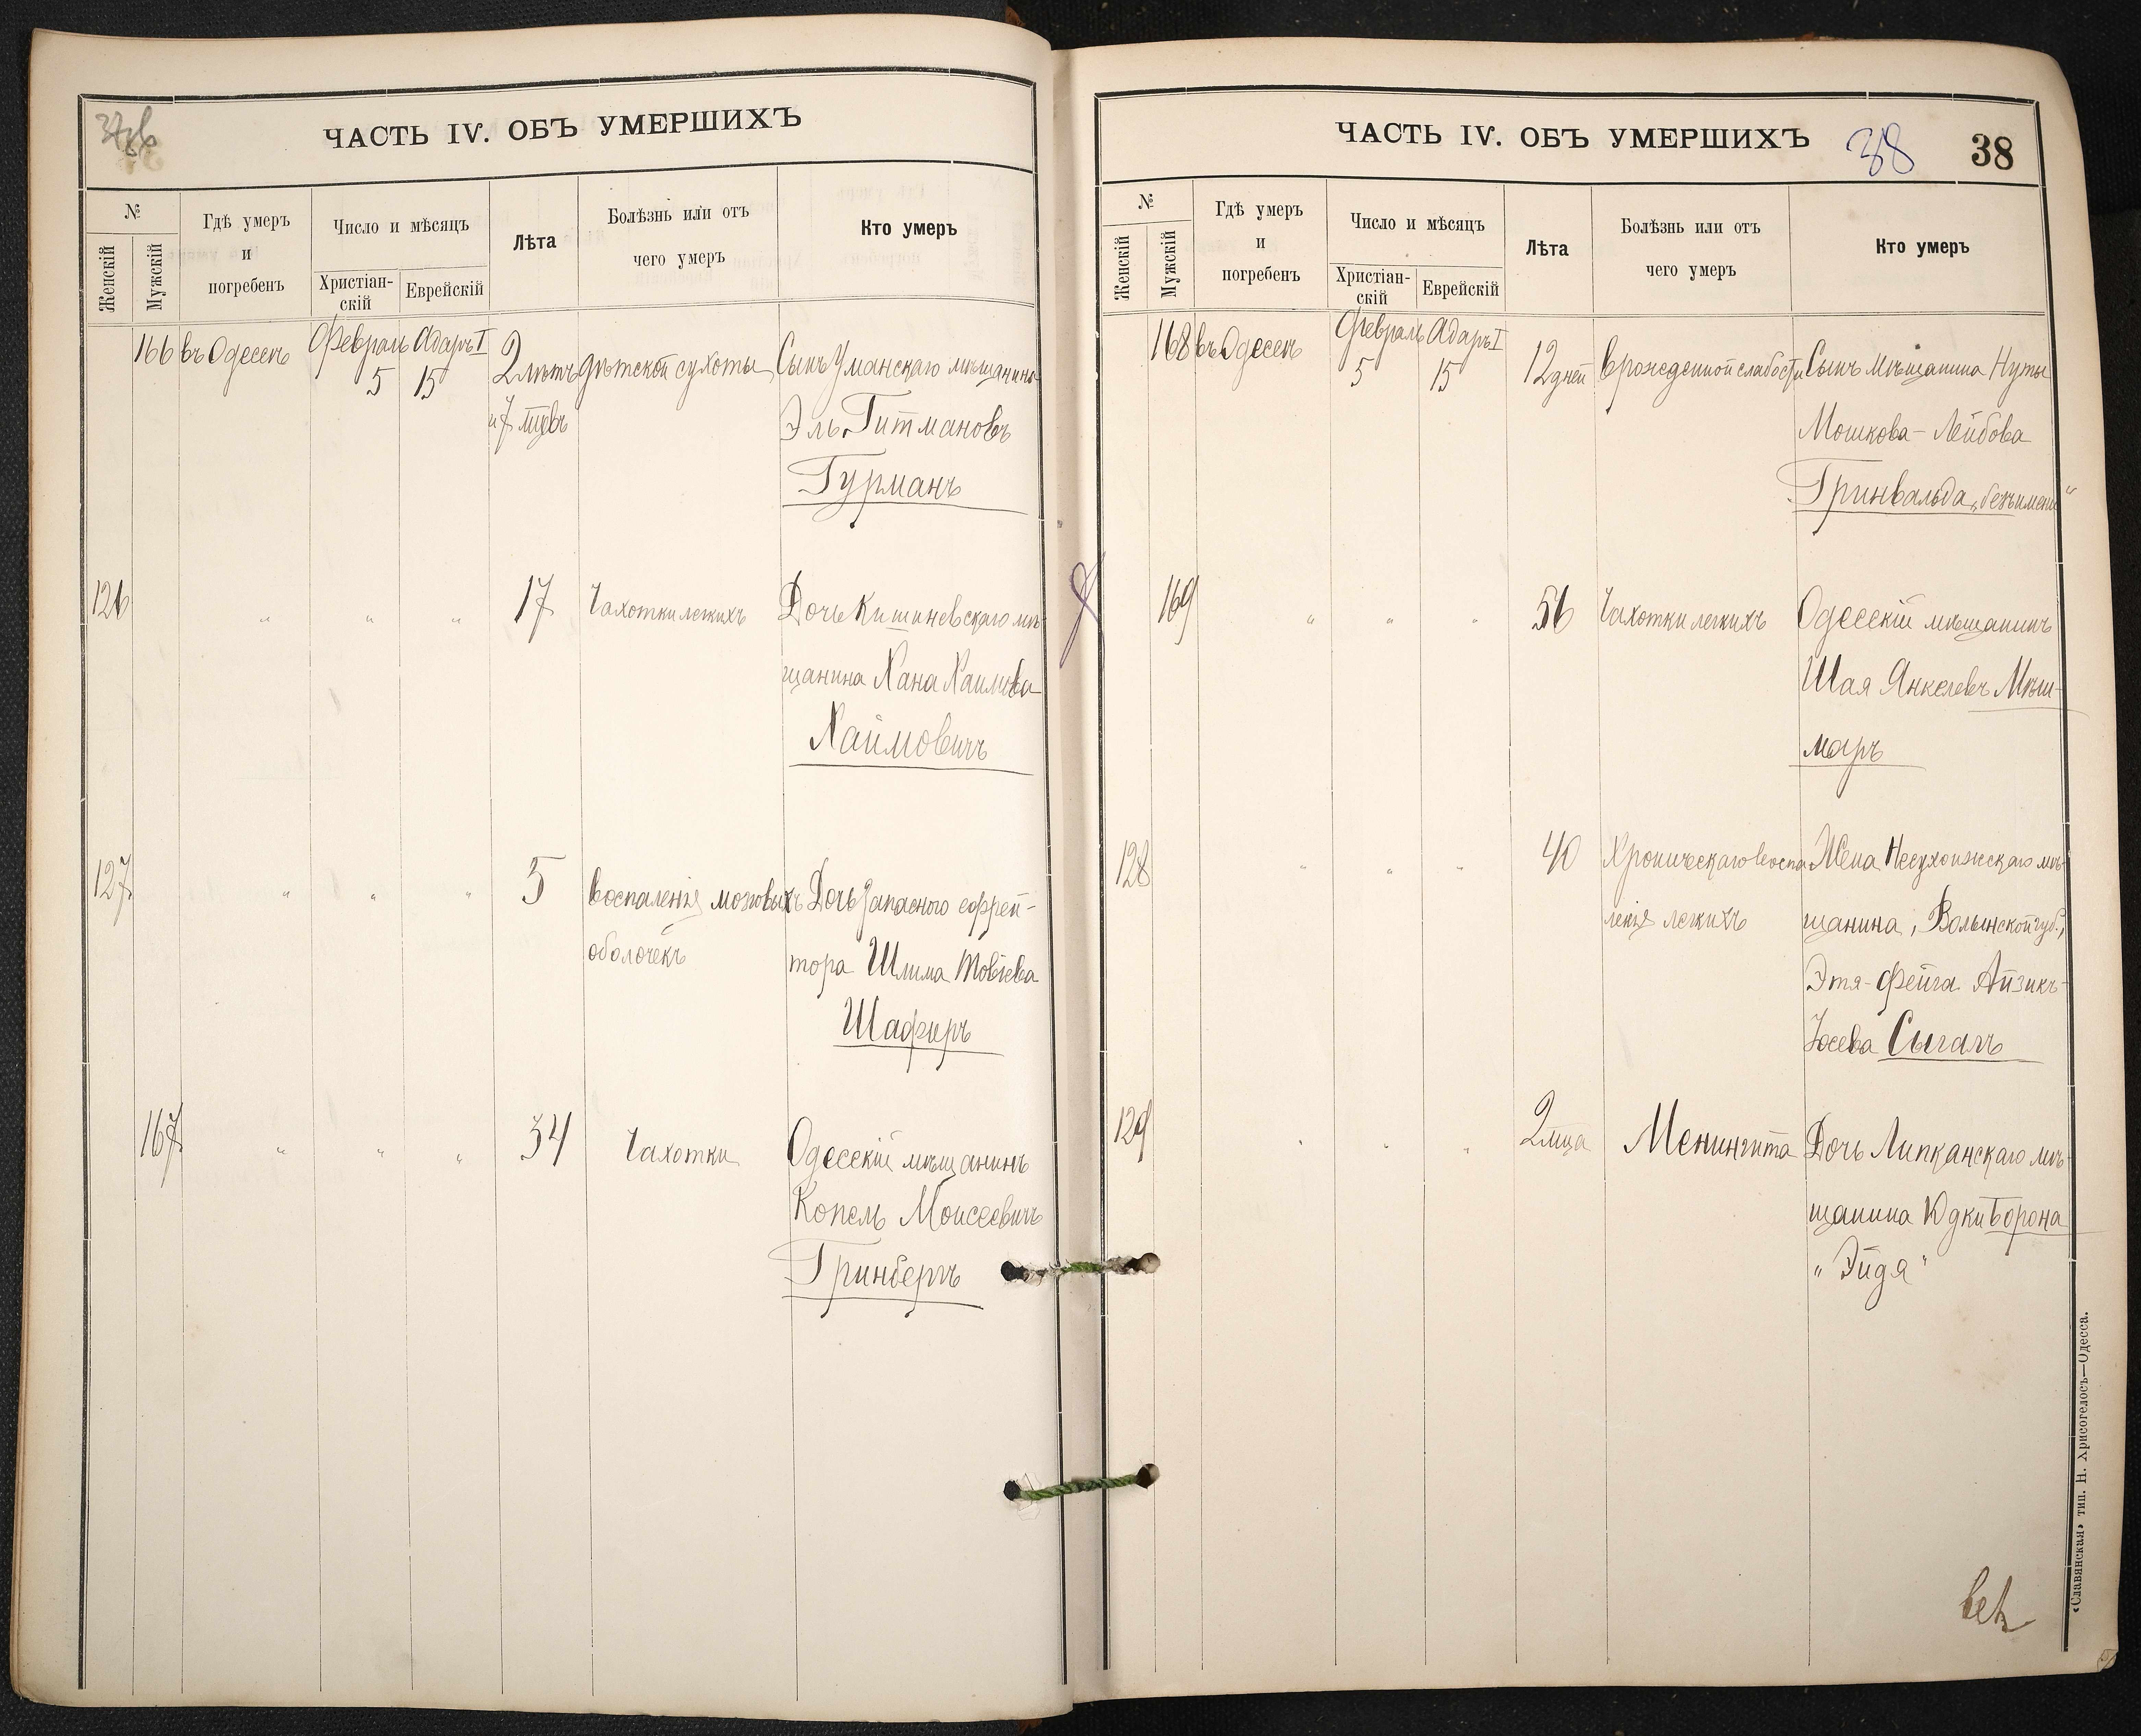 37об
ЧАСТЬ IV. ОБЪ УМЕРШИХЪ
№
Женскій
Мужскій
Гдѣ умеръ
и
погребенъ
Число и мѣсяцъ
Христіан-
скій
Еврейскій
Лѣта
Болѣзнь или отъ
чего умеръ
Кто умеръ
166 въ Одессѣ Февраль Адаръ I
5 15 2 лѣтъ дѣтской сухоты Сынъ Уманскаго мѣщанина
и 7 мцвъ Эль Гитмановъ
Гурманъ
126 " " " 17 Чахотки легкихъ Дочь Кишиневскаго мѣ-
щанина Хана Хаимова
Хаймовичъ
127 " " " 5 Воспаленія мозговыхъ Дочь Запасного ефрей-
оболочекъ тора Шлима Товіева
Шафиръ
167 " " " 34 Чахотки Одесскій мѣщанинъ
Копель Моисеевичъ
Гринбергъ
ЧАСТЬ IV. ОБЪ УМЕРШИХЪ 38 38
№
Женскій
Мужскій
Гдѣ умеръ
и
погребенъ
Число и мѣсяцъ
Христіан-
скій
Еврейскій
Лѣта
Болѣзнь или отъ
чего умеръ
Кто умеръ
168 въ Одессѣ Февраль Адаръ I
5 15 12 дней Врожденной слабости Сынъ мѣщанина Нуты
Мошкова-Лейбова
Гринвальда "безъимени"
169 " " " 56 Чахотки легкихъ Одесскій мѣщанинъ
Шая Янкелевъ Мѣш-
маръ
128 " " " 40 Хроническаго воспа Жена Несухоижскаго мѣ-
ленія легкихъ щанина, Волынской губ.,
Этя-Фейга Айзикъ-
Іосева Сыгалъ
129 " " " 2 мца Менингита Дочь Липканскаго мѣ-
щанина Юдки Борона
"Эйдя"
«Славянская» тип. Н. Хрисогелосъ—Одесса.